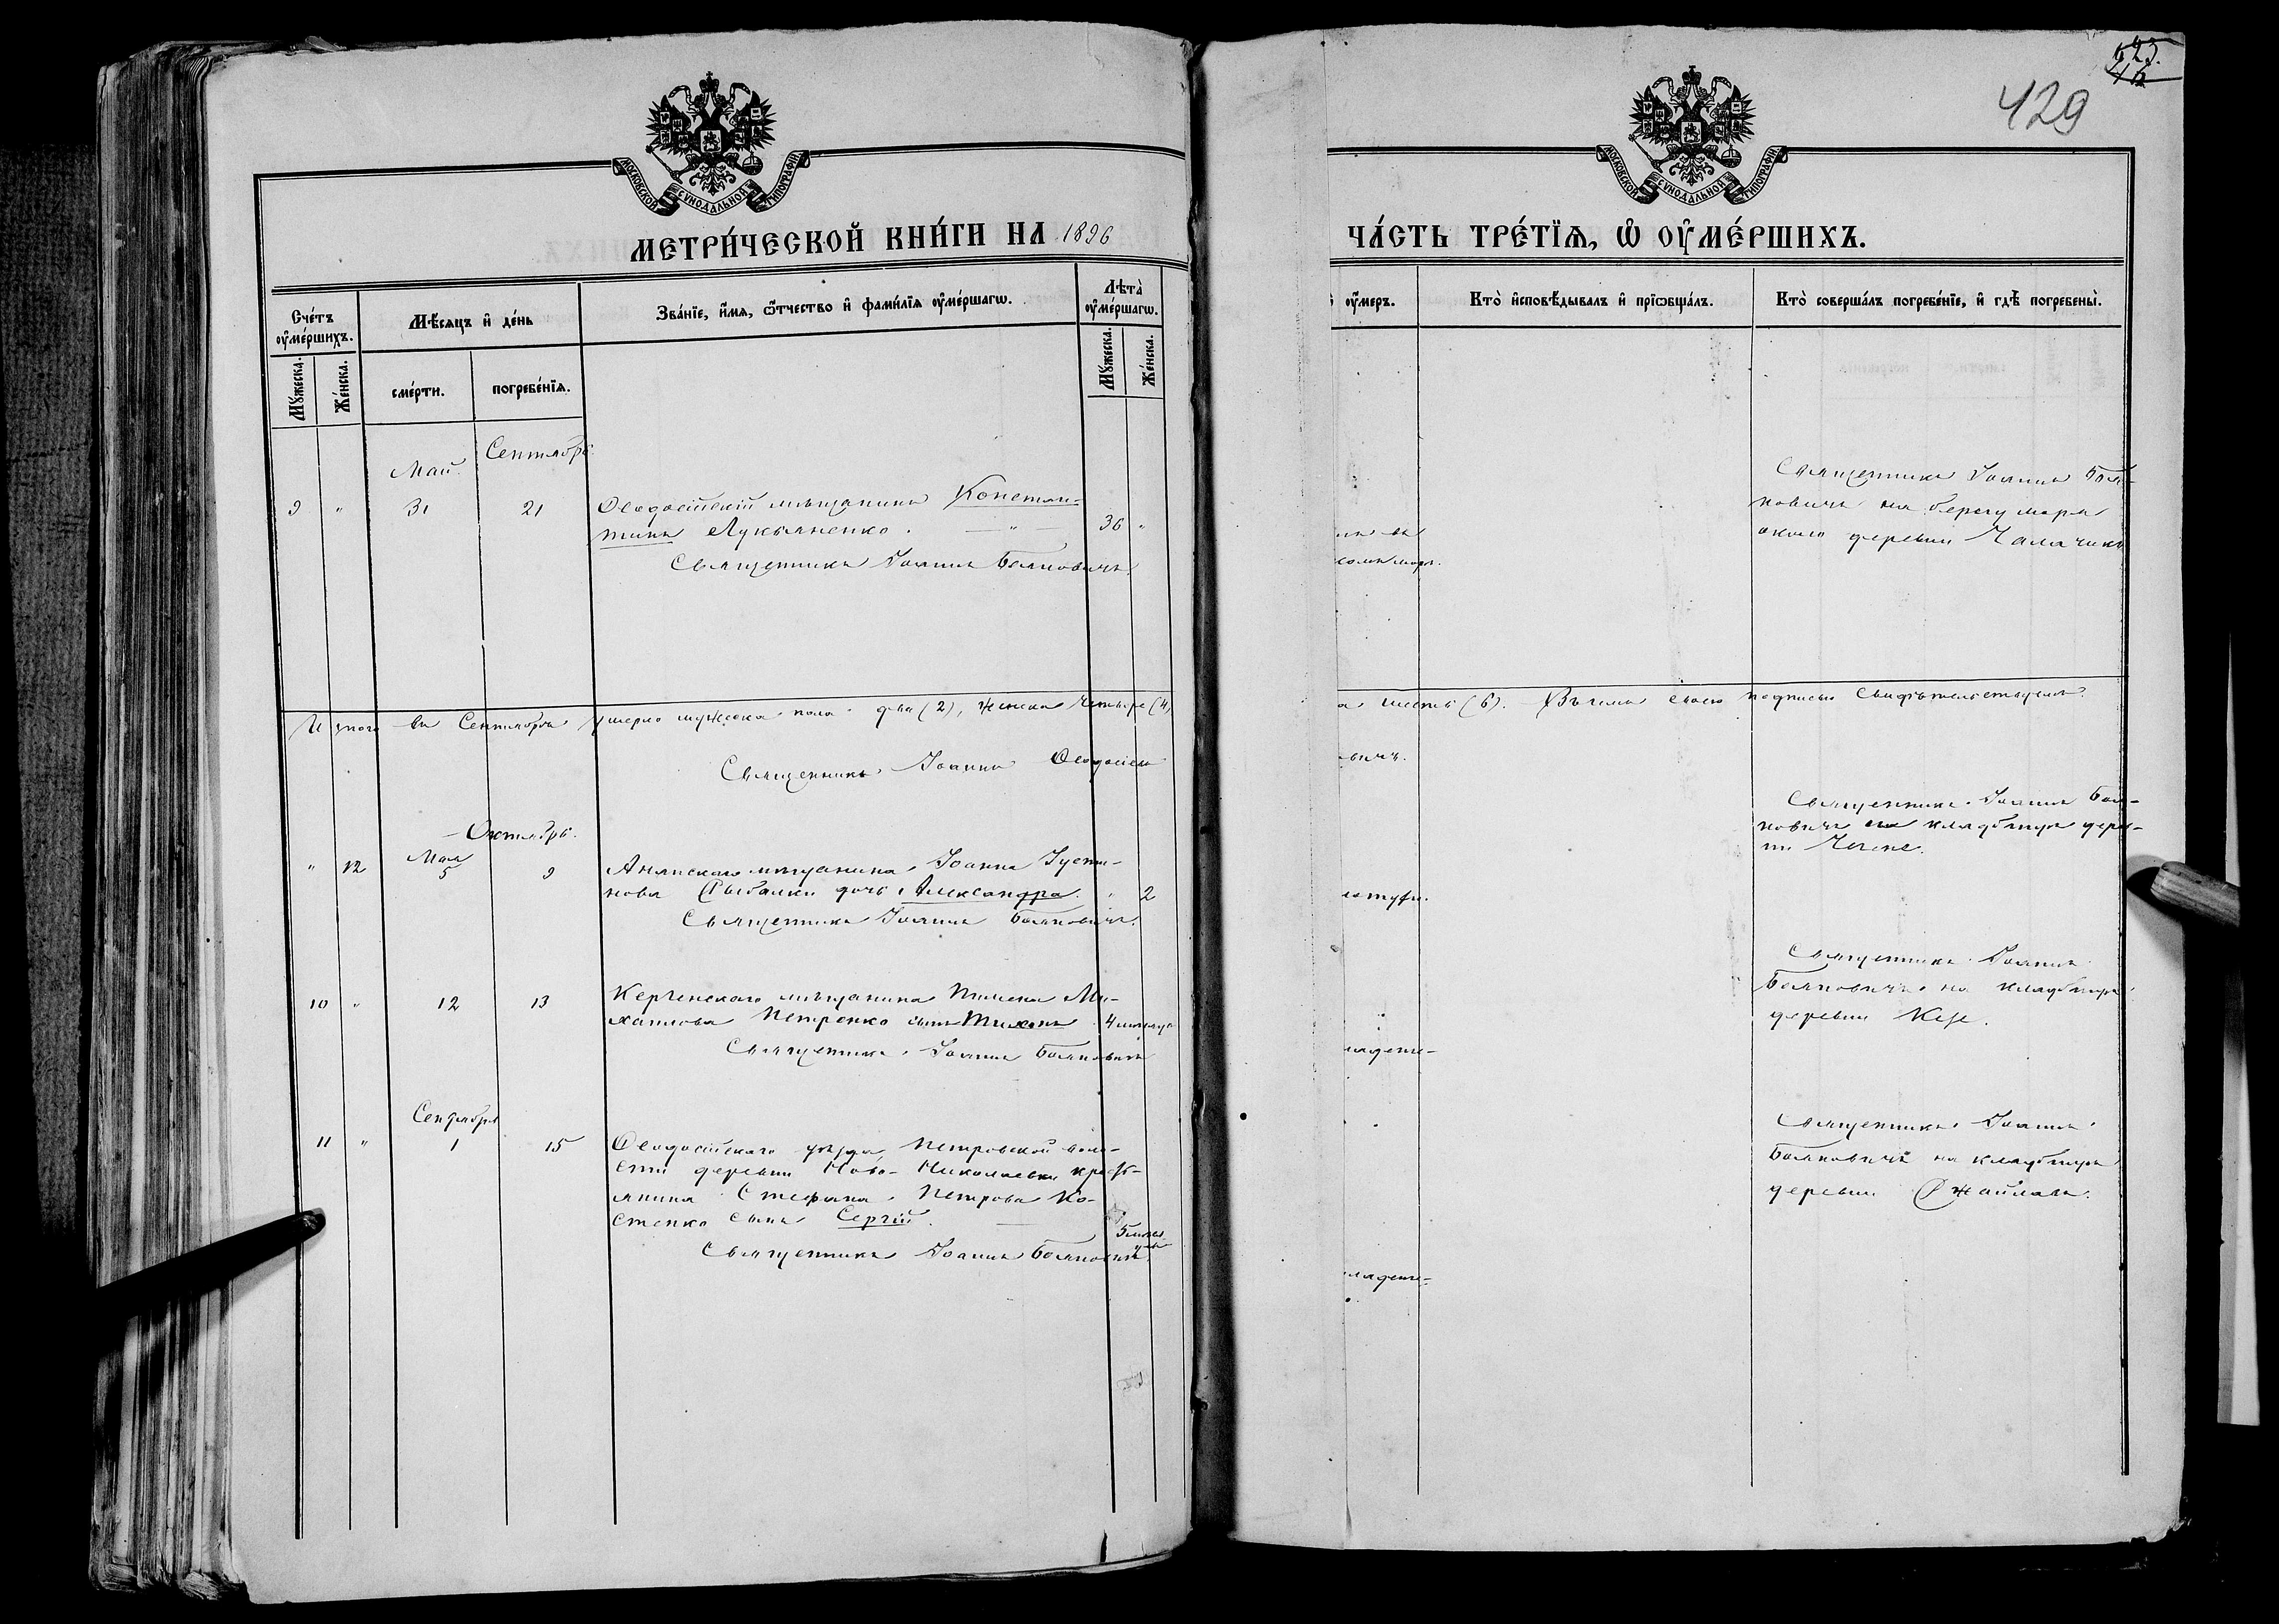 МОСКОВСКОЙ СѴНОДАЛЬНОЙ ТИПОГРАФІИ
МЕТРИ́ЧЕСКОЙ КНИ́ГИ НА 1896
Сче́тъ ᲂу҆ме́ршихъ.
Мꙋ́жеска.
Же́нска.
Мѣ́сяцъ и҆ де́нь
сме́рти.
погребе́нїѧ.
Зва́нїе, и҆́мѧ, ѻ҆́тчество и҆ фами́лїѧ ᲂу҆ме́ршагѡ.
Лѣта̀ ᲂу҆ме́ршагѡ.
Мꙋ́жеска.
Же́нска.
Май.
Сентябрь.
9 " 31 21 Ѳеодосійскій мѣщанинъ Констан-
тинъ Лукьяненко. — " — 36 "
Священникъ Іоаннъ Бояновичъ.
Итого въ Сентябрѣ умерло мужеска пола два (2), женска четыре (4)
Священникъ Іоаннъ
Октябрь.
" 12 Мая 5 9 мѣщанина Іоанна Іусти-
нова Рыбалки дочь Александра. " 2
Священникъ Іоаннъ Бояновичъ.
10 " 12 13 Керченскаго мѣщанина Пимена Ми-
хаилова Петренко сынъ Тихонъ 4 мѣсяца
Священникъ Іоаннъ Бояновичъ
Сентября
11 " 1 15 Ѳеодосійскаго уѣзда, Петровской воло-
сти деревни Ново-Николаевки кресть-
янина Стефана Петрова Ко-
стенко сынъ Сергій. — 5 мѣся
цевъ
Священникъ Іоаннъ Бояновичъ.
423.
429
МОСКОВСКОЙ СѴНОДАЛЬНОЙ ТИПОГРАФІИ
ЧА́СТЬ ТРЕ́ТЇѦ, Ѡ҆ ОУ҆МЕ́РШИХЪ.
ᲂу҆́меръ.
Кто̀ и҆сповѣ́дывалъ и҆ прїѡбща́лъ.
Кто̀ соверша́лъ погребе́нїе, и҆ гдѣ̀ погребены̀.
Священникъ Іоаннъ Боя-
новичъ на берегу моря
около деревни
шесть (6). Въ чемъ своею подписью свидѣтельствуемъ.
вичъ.
Священникъ Іоаннъ Боя-
новичъ на кладбищѣ дерев-
ни
Священникъ Іоаннъ
Бояновичъ на кладбищѣ
деревни Кезе.
Священникъ Іоаннъ
Бояновичъ на кладбищѣ
деревни